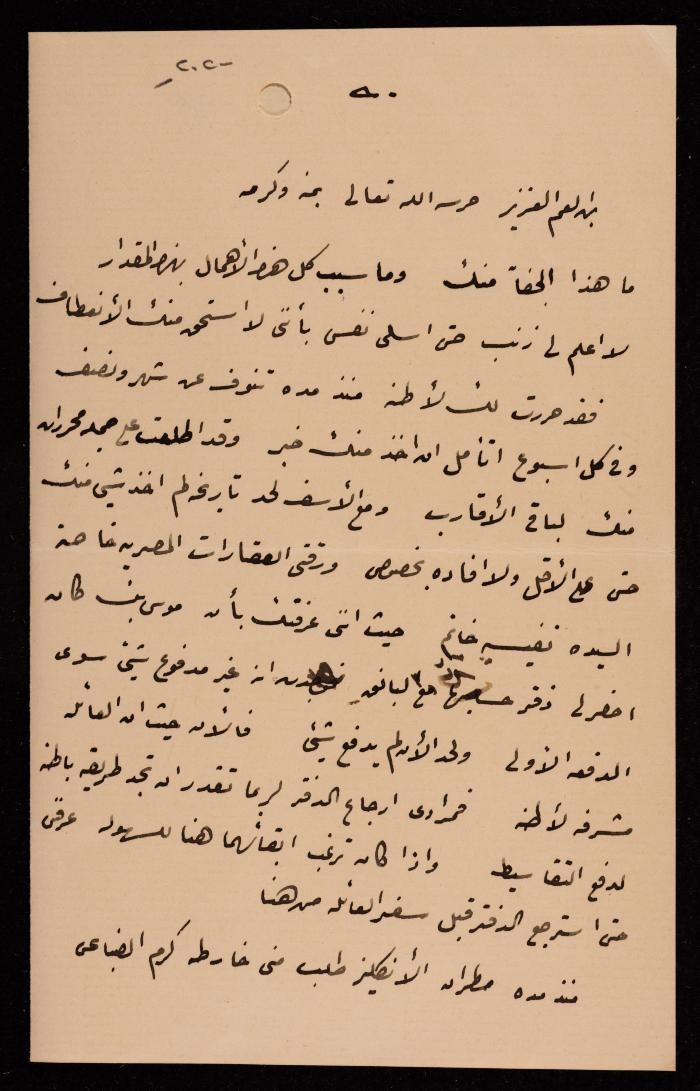 ٢٠٢
ابن العم العزيز حرسه الله تعالى بمنه وكرمه
ما هذا الجفاء منك وما سبب كل هذا الأهمال بهذا المقدار
لا اعلم لي ذنب حتى اسلي نفسي بأنني لا استحق منك الأنعطاف
فقد حررت لك لأطنه منذ مده تنوف عن شهر ونصف
وفي كل اسبوع اتأمل ان اخذ منك خبر وقد اطلعت على جملة محررات
منك لباقي الأقارب ومع الأسف لحد تاريخه لم اخذ شيئ منك
حتى على الأقل ولا افاده بخصوص ورقتي العقارات المصريه خاصة
السيده نفيسه خانم حيث انني عرفتك بأن موسى بك كان
احضر لي دفتر مع البانق انه غير مدفوع شيئ سوى
الدفعه الأولى ولحد الأن لم يدفع شيئ فالأن حيث ان العائله
مشرفه لأطنه فمرادي ارجاع الدفتر لربما تقدر ان تجد طريقه باطنه
لدفع التقاسيط واذا كان ترغب ابقائهما هنا للسهوله عرفني
حتى استرجع الدفتر قبل سفر العائله من هنا
منذ مده مطران الأنكليز طلب مني خارطة كرم الضباعي